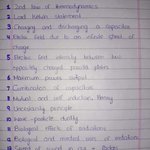 1. 2nd law of thermodynamics
2. Lord Kelvin statement
3. Charging and discharging a capacitor
4. Electric field due to an infinite sheet of
charge
5. Electric field intensity between two
oppositely charged parallel plates
6. Maximum power output
7. Combination of capacitors
8. Mutual and self induction, Henery
9. Uncertainty principle
10. Wave-particle duality
11. Biological effects of radiations
12. Biological and medical uses of radiation
13. Speed of sound in